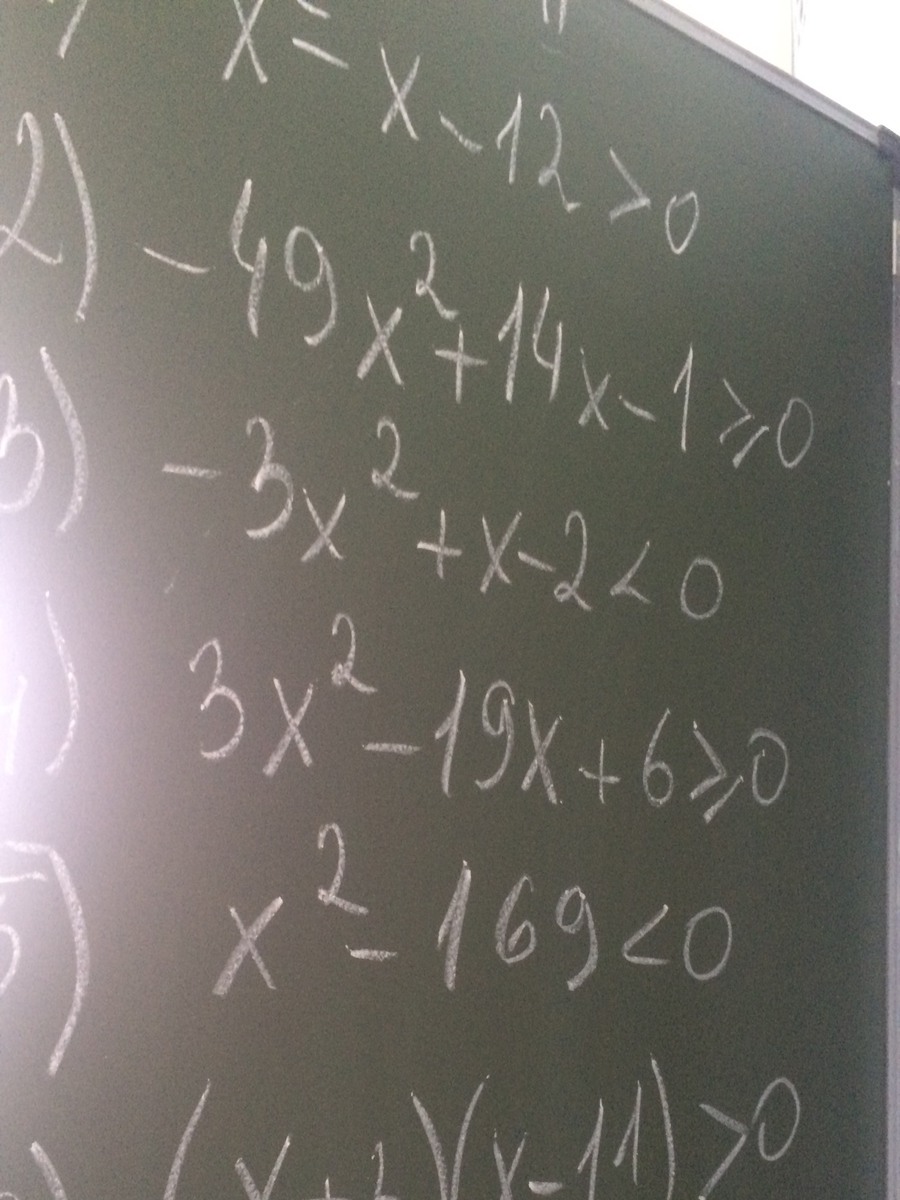 x - x - 12 > 0
2) - 49x² + 14x - 1 ≥ 0
3) - 3x² + x - 2 < 0
4) 3x² - 19x + 6 ≥ 0
5) x² - 169 < 0
) (x + )(x - 11) > 0